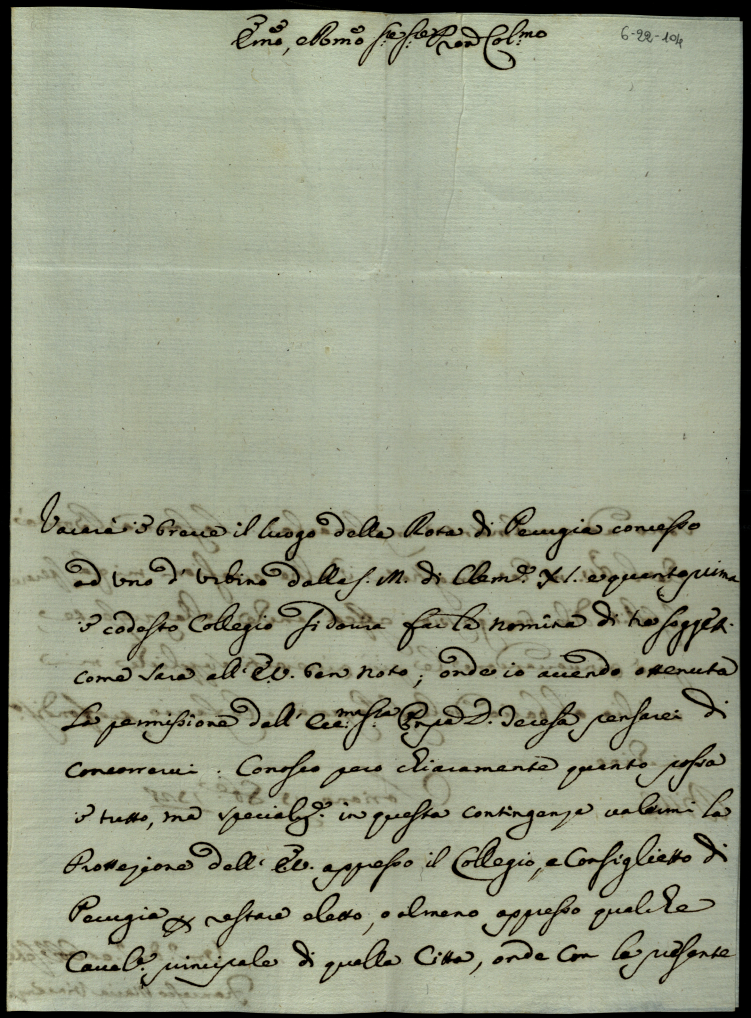 Emo, e Rmo Sre Sre Pron Colmo
6-22-104
Vacarà in breve il luogo della Rota di Perugia concesso
ad uno d'Urbino dalla S. M. di Clem.e XI. e quanto prima
in codesto Collegio si dovrà far la nomina di tre soggetti
come sarà all'E.V. ben noto; onde io avendo ottenuta
la permissione dall' Ecc.ma Sig.ra Pnpa D. Teresa pensarei di
concorrervi. Conosco però chiaramente quanto possa
in tutto, ma specialm.te in questa contingenza valermi la
Protezione dell' E.V. appresso il Collegio, e Consiglietto di
Perugia per restare eletto, o almeno appresso qualche
Caval.e principale di quella Città, onde con la presente